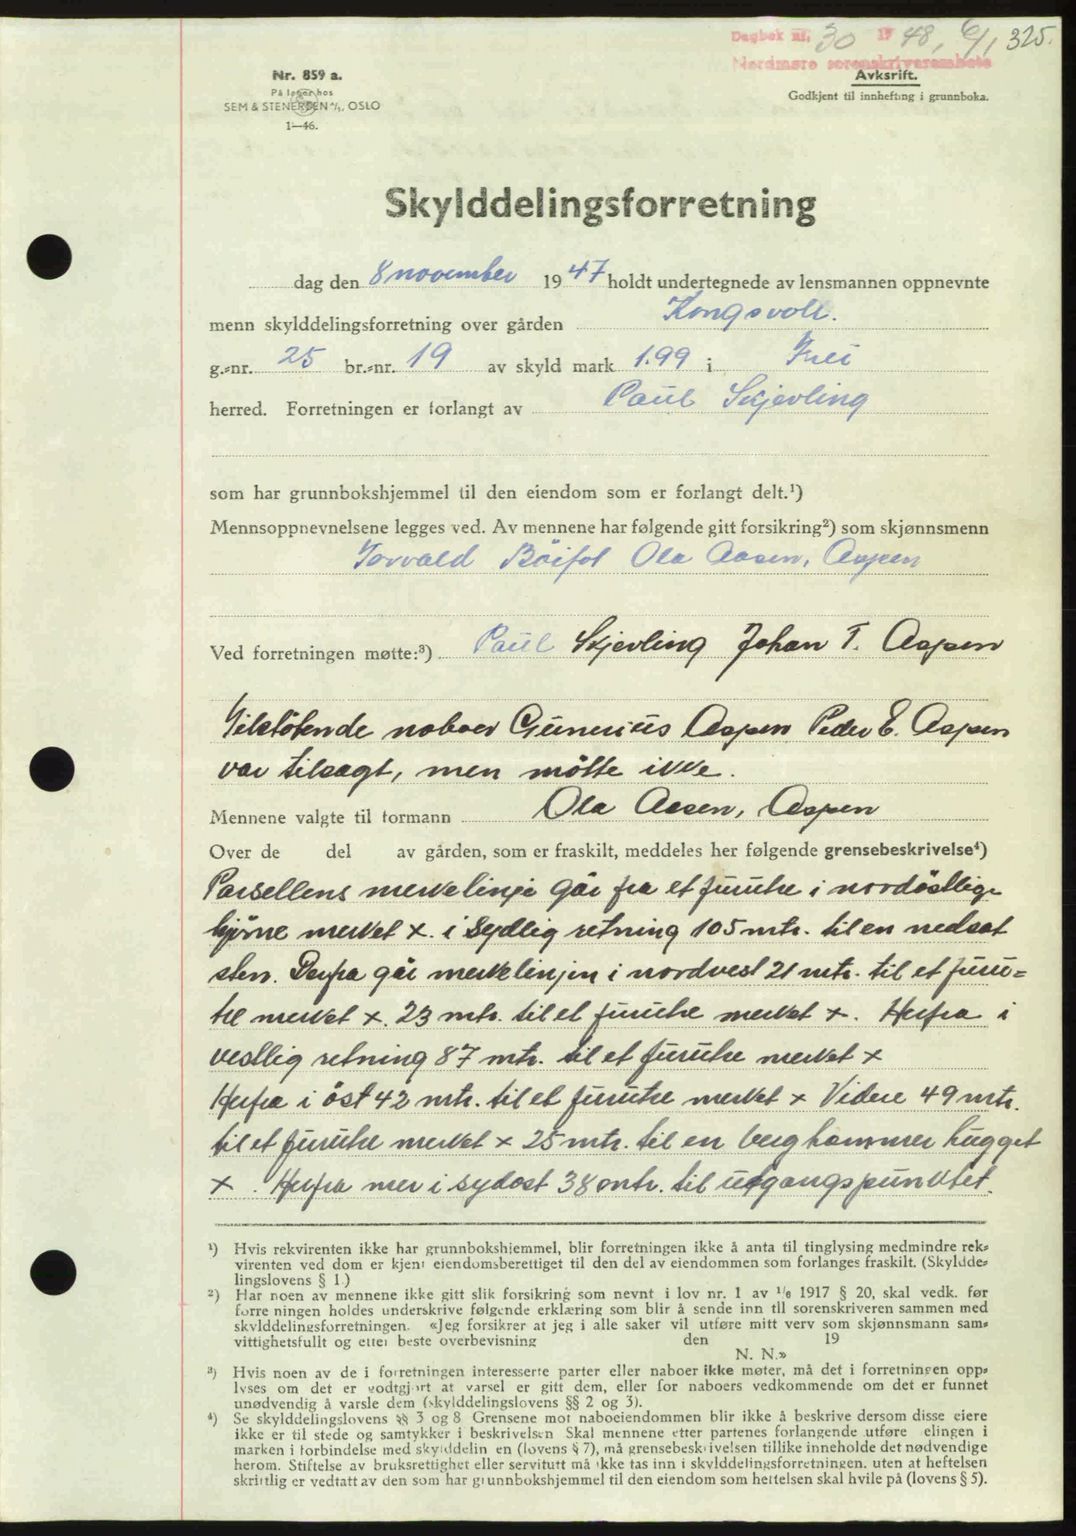 Dagbok nr. 30 1948, 6/1 325.
Nordmøre sorenskriverembete
Nr. 859 a.
På lager hos
SEM & STENERSEN A/S, OSLO
1—46.
Avskrift.
Godkjent til innhefting i grunnboka.
Skylddelingsforretning
dag den 8 november 1947 holdt undertegnede av lensmannen oppnevnte
menn skylddelingsforretning over gården Kongsvoll.
g.-nr. 25 br.-nr. 19 av skyld mark 1.99 i Frei
herred. Forretningen er forlangt av Paul Skjevling
som har grunnbokshjemmel til den eiendom som er forlangt delt.¹)
Mennsoppnevnelsene legges ved. Av mennene har følgende gitt forsikring²) som skjønnsmenn
Torvald Böifot Ola Aasen, Aspen
Ved forretningen møtte:³) Paul Skjevling Johan T. Aspen
Tilstötende naboer Gunerius Aspen Peder E. Aspen
var tilsagt, men mötte ikke.
Mennene valgte til formann Ola Aasen, Aspen
Over de del av gården, som er fraskilt, meddeles her følgende grensebeskrivelse⁴)
Parsellens merkelinje går fra et furutre i nordöstlige
hjörne merket x. i Sydlig retning 105 mtr. til en nedsat
sten. Derfra går merkelinjen i nordvest 21 mtr. til et furu=
tre merket x. 23 mtr. til et furutre merket x. Herfra i
vestlig retning 87 mtr. til et furutre merket x
Herfra i öst 42 mtr. til et furutre merket x Videre 49 mtr.
til et furutre merket x 25 mtr. til en berghammer hugget
x . Herfra mer i sydost 38 mtr. til utgangspunktet.
¹) Hvis rekvirenten ikke har grunnbokshjemmel, blir forretningen ikke å anta til tinglysing medmindre rek-
virenten ved dom er kjent eiendomsberettiget til den del av eiendommen som forlanges fraskilt. (Skyldde-
lingslovens § 1.)
²) Har noen av mennene ikke gitt slik forsikring som nevnt i lov nr. 1 av 1/6 1917 § 20, skal vedk. før
forretningen holdes underskrive følgende erklæring som blir å sende inn til sorenskriveren sammen med
skylddelingsforretningen. «Jeg forsikrer at jeg i alle saker vil utføre mitt verv som skjønnsmann sam-
vittighetsfullt og etter beste overbevisning den 19
N. N.»
³) Hvis noen av de i forretningen interesserte parter eller naboer ikke møter, må det i forretningen opp-
lyses om det er godtgjort at varsel er gitt dem, eller for naboers vedkommende om det er funnet
unødvendig å varsle dem (skylddelingslovens §§ 2 og 3).
⁴) Se skylddelingslovens §§ 3 og 8 Grensene mot naboeiendommen blir ikke å beskrive dersom disse eiere
ikke er til stede og samtykker i beskrivelsen Skal mennene etter partenes forlangende utføre delingen i
marken i forbindelse med skylddelingen (lovens § 7), må grensebeskrivelsen tillike inneholde det nødvendige
herom. Stiftelse av bruksrettighet eller servitutt må ikke tas inn i skylddelingsforretningen. uten at heftelsen
skriftlig er vedtatt av den som har grunnbokshjemmel til den eiendom som heftelsen skal hvile på (lovens § 5).